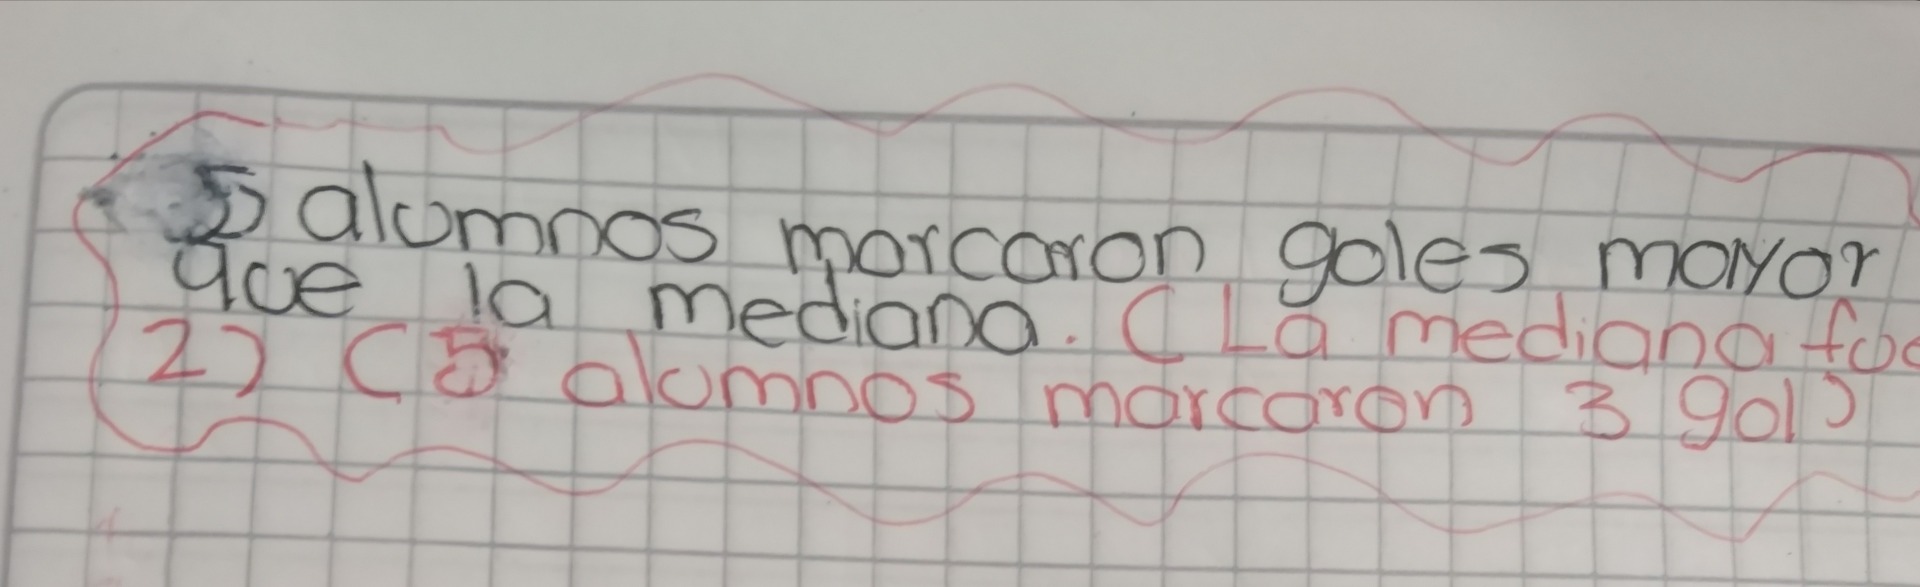 5 alumnos marcaron goles mayor
que la mediana. (La mediana fue
2) (5 alumnos marcaron 3 gol)